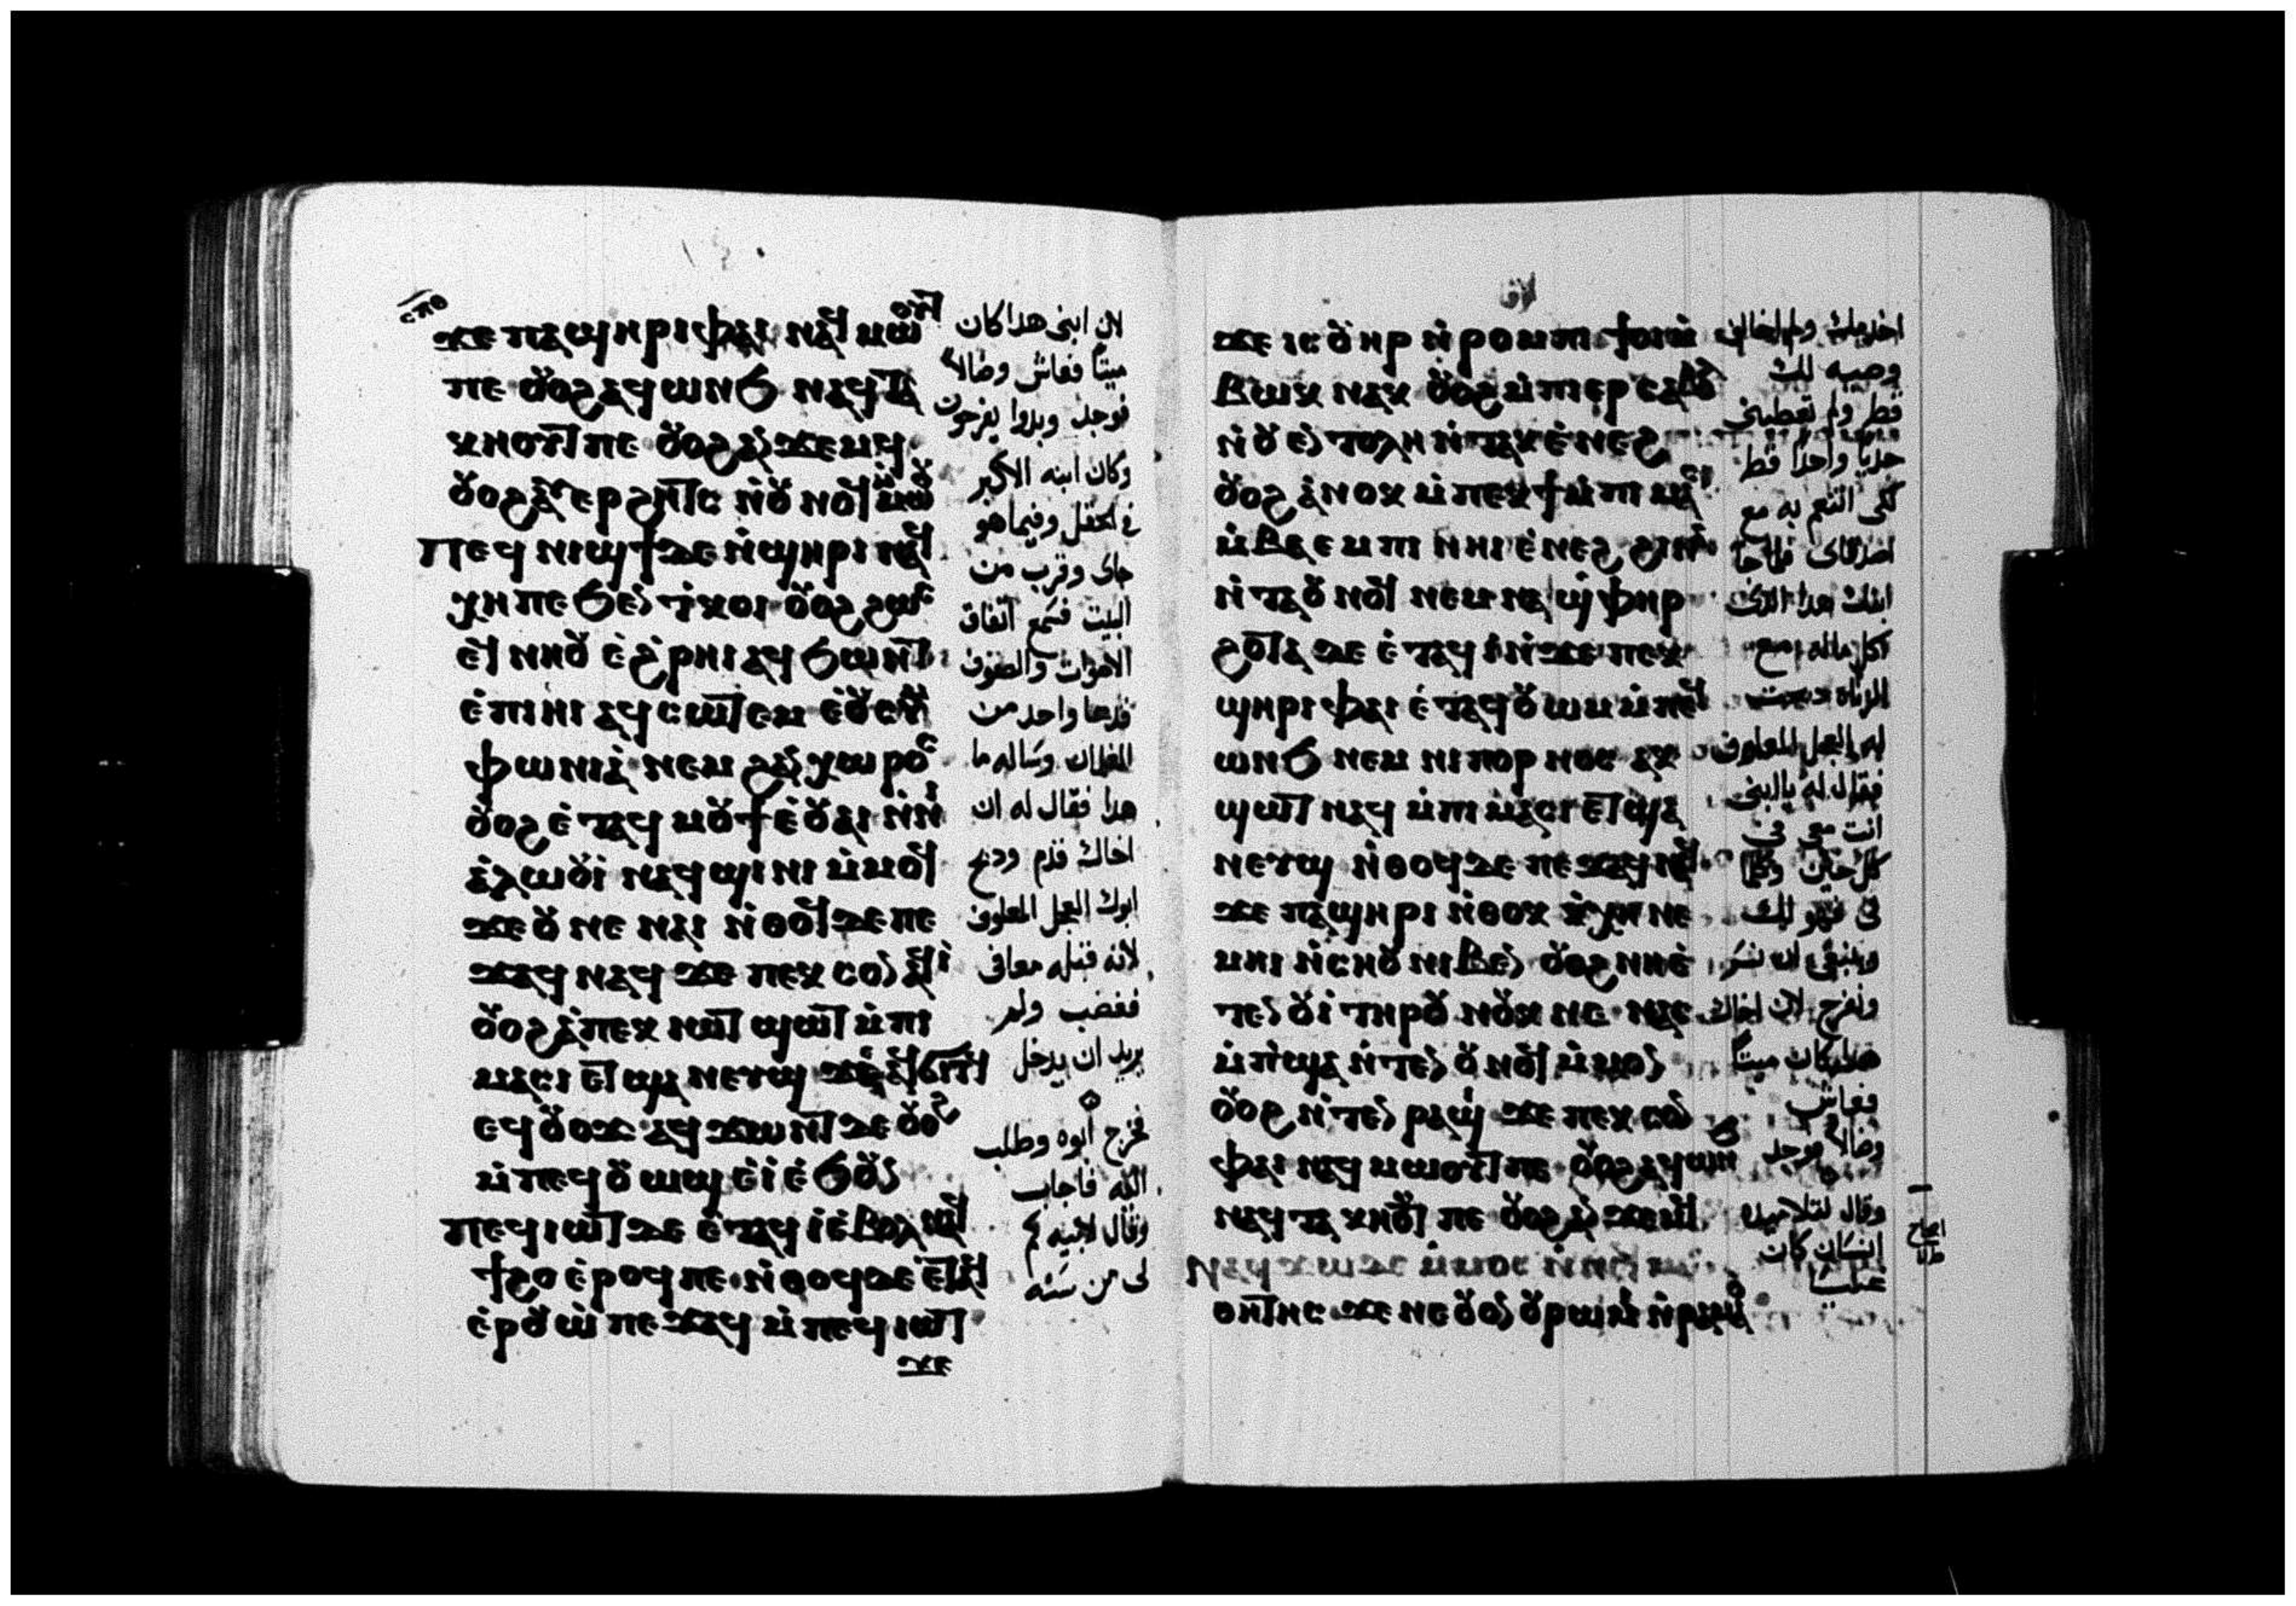 ⲥⲡⲑ
ϫⲉ ⲡⲁϣⲏⲣⲓ ⲫⲁⲓ ⲛⲁϥ ⲙⲱⲟⲩⲧ
ⲡⲉ ⲟⲩⲟϩ ⲁϥⲱⲛϧ ⲛⲁϥⲧⲁ
ⲕⲏⲟⲩⲧ ⲡⲉ ⲟⲩⲟϩ ⲁⲩϫⲉⲙϥ
ⲟⲩⲟϩ ⲁⲩⲉⲣϩⲏⲧⲥ ⲛ̀ⲟⲩⲛⲟϥ ⲙ̀ⲙⲱⲟⲩ
ⲡⲉϥⲛⲓϣϯ ⲇⲉ ⲛ̀ϣⲏⲣⲓ ⲛⲁϥ
ⲭⲏ ⲡⲉ ϧⲉⲛ ⲧ̀ⲕⲟⲓ ⲟⲩⲟϩ ϩⲱⲥ
ⲉϥⲛⲏⲟⲩ ⲉ̀ϩ̀ⲣⲏⲓ ⲁϥϧⲱⲛⲧ
ⲉ̀ⲡⲓⲏⲓ ⲁϥⲥⲱⲧⲉⲙ ⲉ̀ⲟⲩⲥⲩⲙ
ⲫⲱⲛⲓⲁ̀ ⲛⲉⲙ ϩⲁⲛⲭⲱⲣⲟⲥ
ⲟⲩⲟϩ ⲉ̀ⲧⲁϥ ⲙⲟⲩϯ ⲉ̀ⲟⲩⲁⲓ ⲛ̀ⲛⲓ
ⲁ̀ⲗⲱⲟⲩⲓ̀ ⲛⲁϥϣⲓⲛⲓ ⲙ̀ⲙⲟϥ
ϫⲉ ⲟⲩ ⲛⲉ ⲛⲁⲓ ⲛ̀ⲑⲟϥ ⲇⲉ ⲡⲉ
ϫⲁϥ ⲛⲁϥ ϫⲉ ⲡⲉⲕⲥⲟⲛ ⲁϥⲓ̀
ⲟⲩⲟϩ ⲁ̀ⲡⲉⲕⲓⲱⲧ ϣⲱⲧ ⲙ̀ⲡⲓ
ⲙⲁⲥⲓ ⲉⲧϣⲁⲛⲉⲩϣ ϫⲉ ⲁϥϭⲓⲧϥ
ⲉϥⲟⲩⲟϫ ⲁϥϫⲱⲛⲧ ⲇⲉ ⲟⲩⲟϩ
ⲙ̀ⲡⲉϥⲟⲩⲱϣ ⲉ̀ⲓ̀ ⲉ̀ϧⲟⲩⲛ
ⲡⲉϥⲓⲱⲧ ⲇⲉ ⲉ̀ⲧⲁϥⲓ̀ ⲉ̀ⲃⲟⲗ ⲛⲁϥ
ϯϩⲟ ⲉ̀ⲣⲟϥ ⲡⲉ ⲛ̀ⲑⲟϥ ⲇⲉ ⲉ̀ⲧⲁϥ
ⲉ̀ⲣⲟⲩⲱ̀ ⲡⲉϫⲁϥ ⲙ̀ⲡⲉϥⲓⲱⲧ
ϫⲉ
لان ابنى هدا كان
ميتاً فعاش وضالاً
فوجد وبدوا يفرحون
وكان ابنه الاكبر
فى الحقل وفيما هو
جاى وقرب من
البيت فسمع اتفاق
الاصوات والصفوف
فدعا واحد من
الغلمان وساله ما
هدا فقال له ان
اخاك قدم ودبح
ابوك العجل المعلوف
لانه قبله معافى
فغضب ولم
يريد ان يدخل
فخرج ابوه وطلب
اليه فاجاب
وقال لابيه كم
لى من سنه
ϫⲉ ⲓⲥ ⲟⲩⲏⲣ ⲛ̀ⲣⲟⲙⲡⲓ ϯⲟⲓ ⲙ̀
ⲃⲱⲕ ⲛⲁⲕ ⲟⲩⲟϩ ⲙ̀ⲡⲓⲉⲣ ⲥⲁⲃⲟⲗ
ⲛ̀ⲟⲩⲉⲛⲧⲟⲗⲏ ⲛ̀ⲧⲁⲕ ⲉ̀ⲛⲉϩ
ⲟⲩⲟϩ ⲁ̀ⲛⲟⲕ ⲙ̀ⲡⲉⲕϯ ⲙ̀ⲡⲓ ⲙⲁⲥ
ⲙ̀ⲃⲁⲉⲙⲡⲓ ⲛⲏⲓ ⲉ̀ⲛⲉϩ ϩⲓⲛⲁ
ⲛ̀ⲧⲁⲟⲩⲛⲟϥ ⲛⲉⲙ ⲛⲁϣ̀ⲫⲏⲣ
ϩⲟⲧⲉ ⲇⲉ ⲉ̀ⲧⲁϥⲓ̀ ⲛ̀ϫⲉ ⲡⲉⲕ
ϣⲏⲣⲓ ⲫⲁⲓ ⲉ̀ⲧⲁϥⲟⲩⲱⲙ ⲙ̀ⲡⲉϥ
ⲱⲛϧ ⲛⲉⲙ ⲛⲓⲡⲟⲣⲛⲟⲥ ⲁⲕ
ϣⲱⲧ ⲛⲁϥ ⲙ̀ⲡⲓⲙⲁⲥⲓ ⲉⲧϣⲁ
ⲛⲉⲩϣ ⲛ̀ⲑⲟϥ ⲇⲉ ⲡⲉϫⲁϥ ⲛⲁϥ
ϫⲉ ⲡⲁϣⲏⲣⲓ ⲛ̀ⲑⲟⲕ ⲕ̀ⲭⲏ ⲛⲉ
ⲙⲏⲓ ⲛ̀ⲥⲏⲟⲩ ⲛⲓⲃⲉⲛ ⲟⲩⲟϩ ⲛⲏⲉ̀
ⲧⲉⲛⲟⲩⲓ̀ ⲧⲏⲣⲟⲩ ⲛⲟⲩⲕ ⲛⲉ ⲛⲁⲥ
ⲙ̀ⲡϣⲁ ⲛ̀ⲧⲉⲛⲟⲩⲛⲟϥ ⲙ̀ⲙⲟⲛ
ⲟⲩⲟϩ ⲛ̀ⲧⲉⲛⲣⲁϣⲓ ϫⲉ ⲡⲉⲕⲥⲟⲛ
ⲫⲁⲓ ⲛⲁϥ ⲙⲱⲟⲩⲧ ⲡⲉ ⲟⲩⲟϩ ⲁϥⲱⲛϧ
ⲛⲁϥⲧⲁⲕⲏⲟⲩⲧ ⲡⲉ ⲟⲩⲟϩ ⲁⲛϫⲉⲙϥ
ⲛⲁϥϫⲱ ⲇⲉ ⲙ̀ⲙⲟⲥ ⲛ̀ⲛⲉϥⲙⲁ
ⲑⲏⲧⲏⲥ ϫⲉ ⲛⲉ ⲟⲩⲟⲛ ⲟⲩⲣⲱⲙⲓ ⲛ̀ⲣⲁⲙⲁⲟ
اخدمك ولم اخالف
وصيه لك
قط ولم تعطينى
جدياً واحداً قط
لكى اتنعم به مع
اصدقاى فلما جا
ابنك هدا الدى
اكل ماله مع
الزناه دبحت
له العجل المعلوف
فقال له يا ابنى
انت معى فى
كل حين وكلما
لى فهو لك
وينبغى ان نسر
ونفرح لان اخاك
هدا كان ميتاً
فعاش
وضالاً فوجد
وقال لتلاميده
انسان كان
غنيا